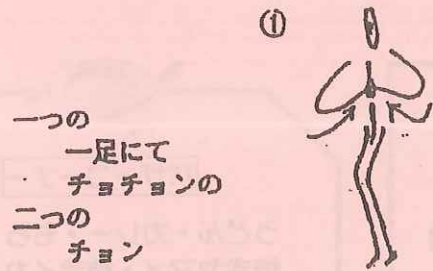 ①
一つの
一足にて
チョチョンの
二つの
チョン